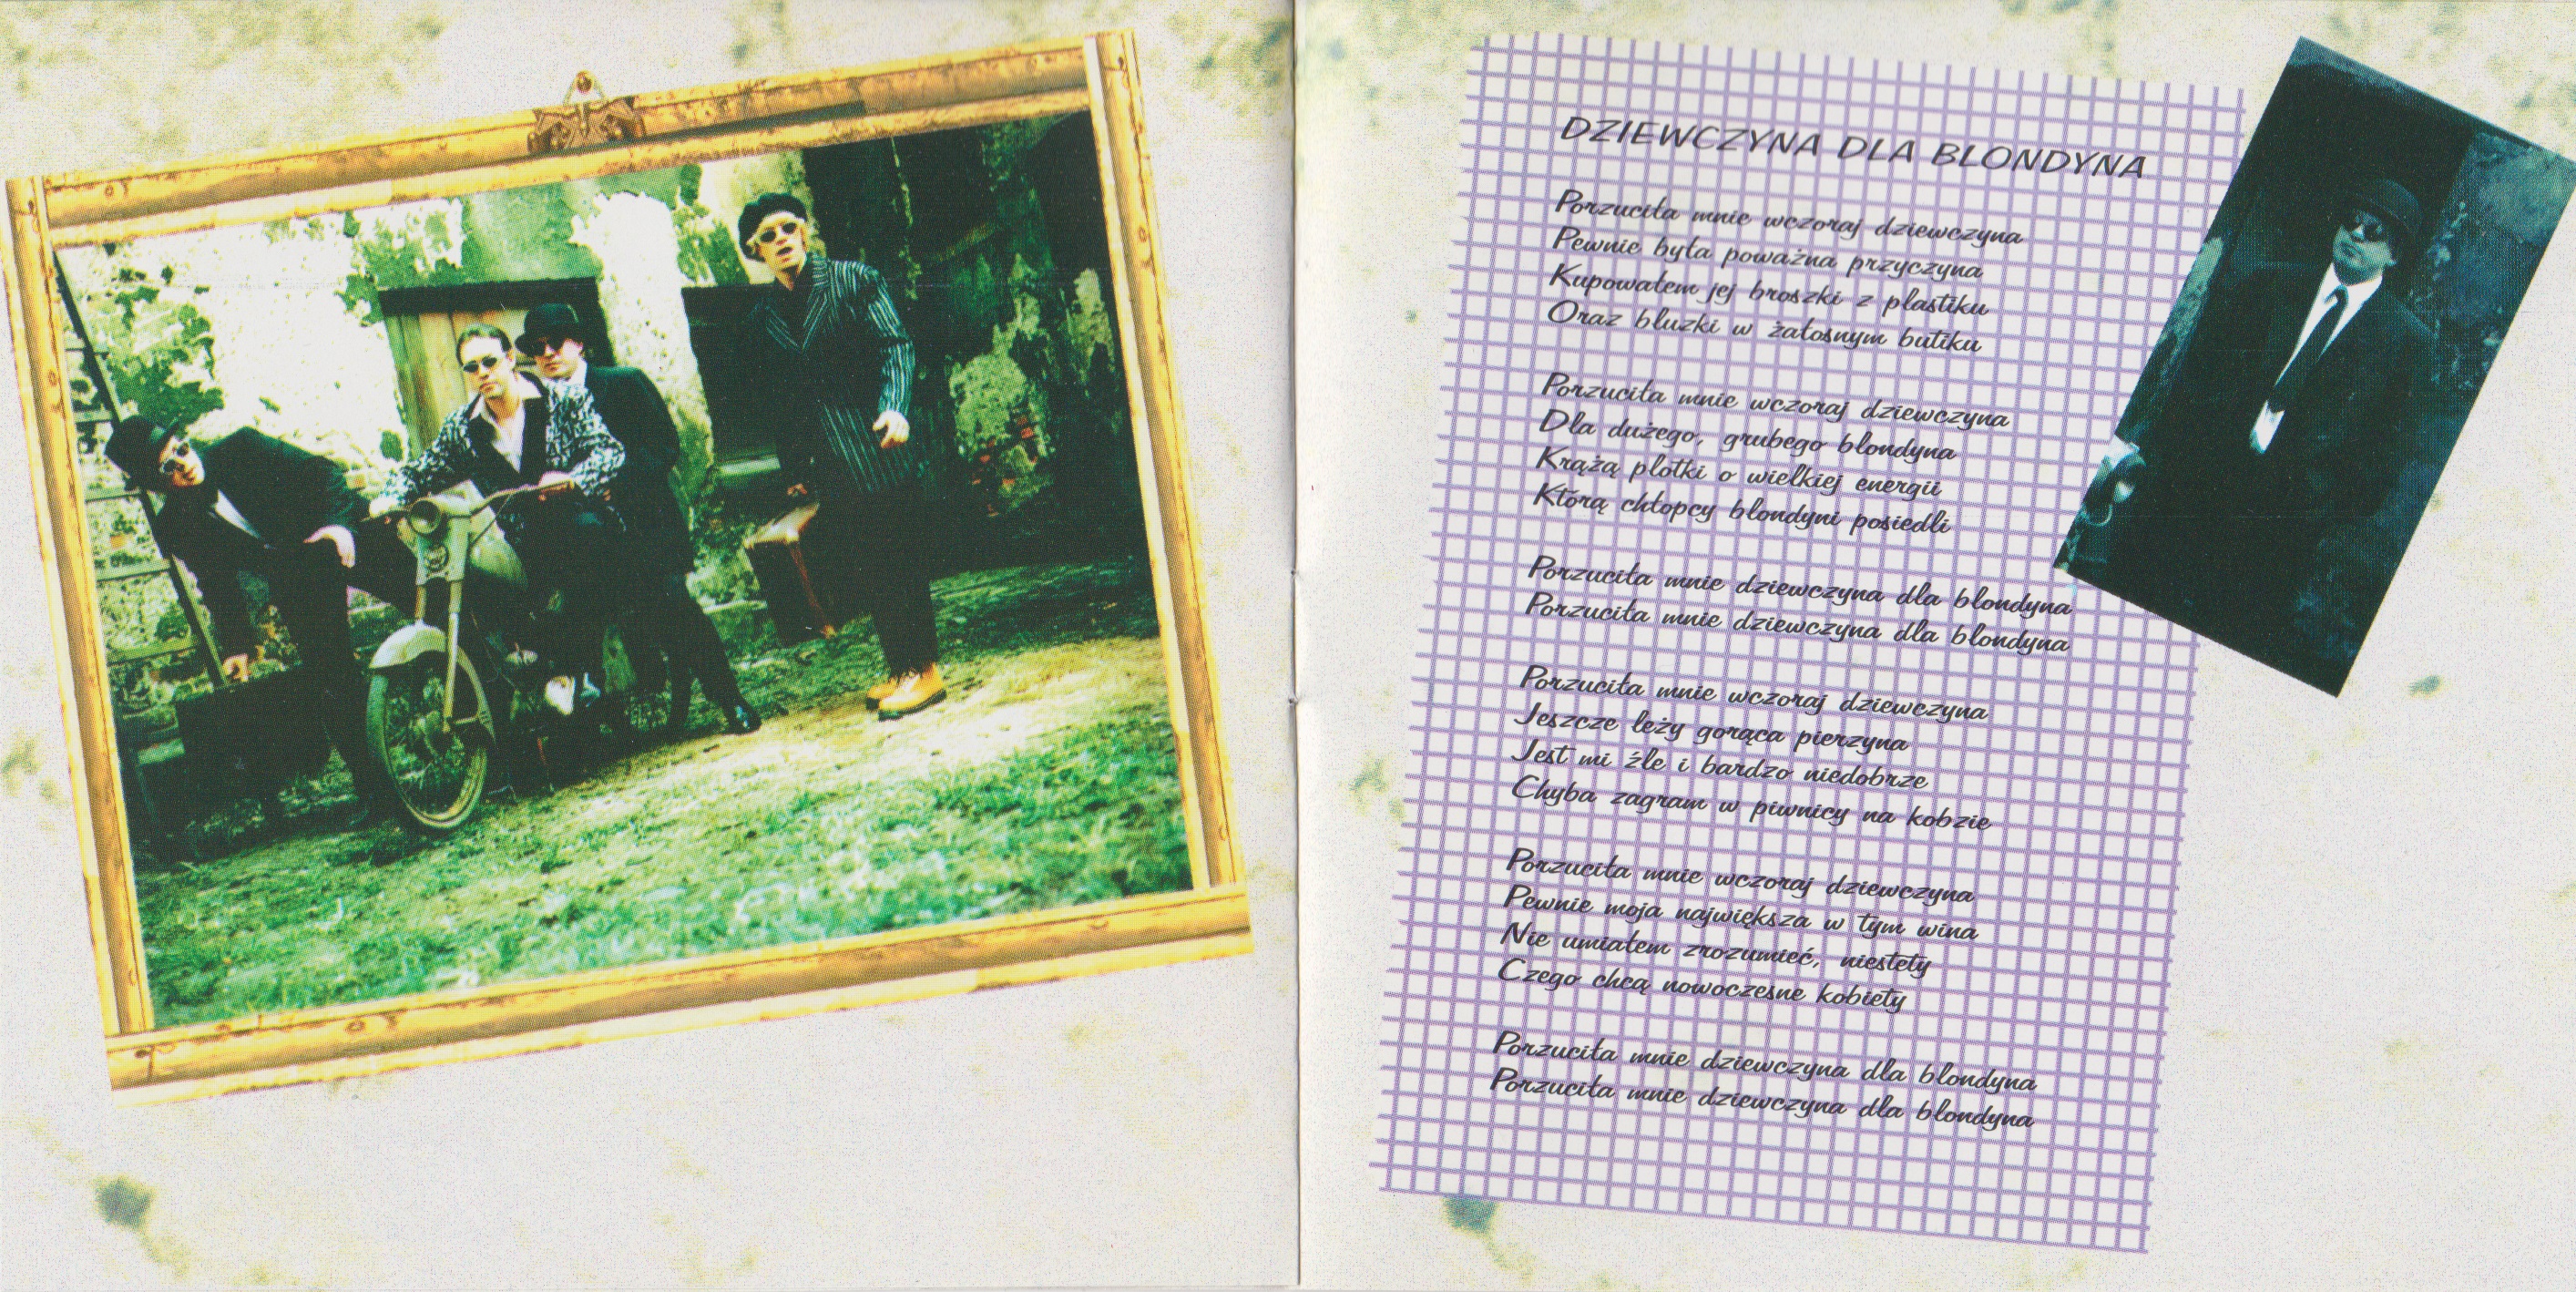 DZIEWCZYNA DLA BLONDYNA
Porzuciła mnie wczoraj dziewczyna
Pewnie była poważna przyczyna
Kupowałem jej broszki z plastiku
Oraz bluzki w żałosnym butiku
Porzuciła mnie wczoraj dziewczyna
Dla dużego, grubego blondyna
Krążą plotki o wielkiej energii
Którą chłopcy blondyni posiedli
Porzuciła mnie dziewczyna dla blondyna
Porzuciła mnie dziewczyna dla blondyna
Porzuciła mnie wczoraj dziewczyna
Jeszcze leży gorąca pierzyna
Jest mi źle i bardzo niedobrze
Chyba zagram w piwnicy na kobzie
Porzuciła mnie wczoraj dziewczyna
Pewnie moja największa w tym wina
Nie umiałem zrozumieć, niestety
Czego chcą nowoczesne kobiety
Porzuciła mnie dziewczyna dla blondyna
Porzuciła mnie dziewczyna dla blondyna